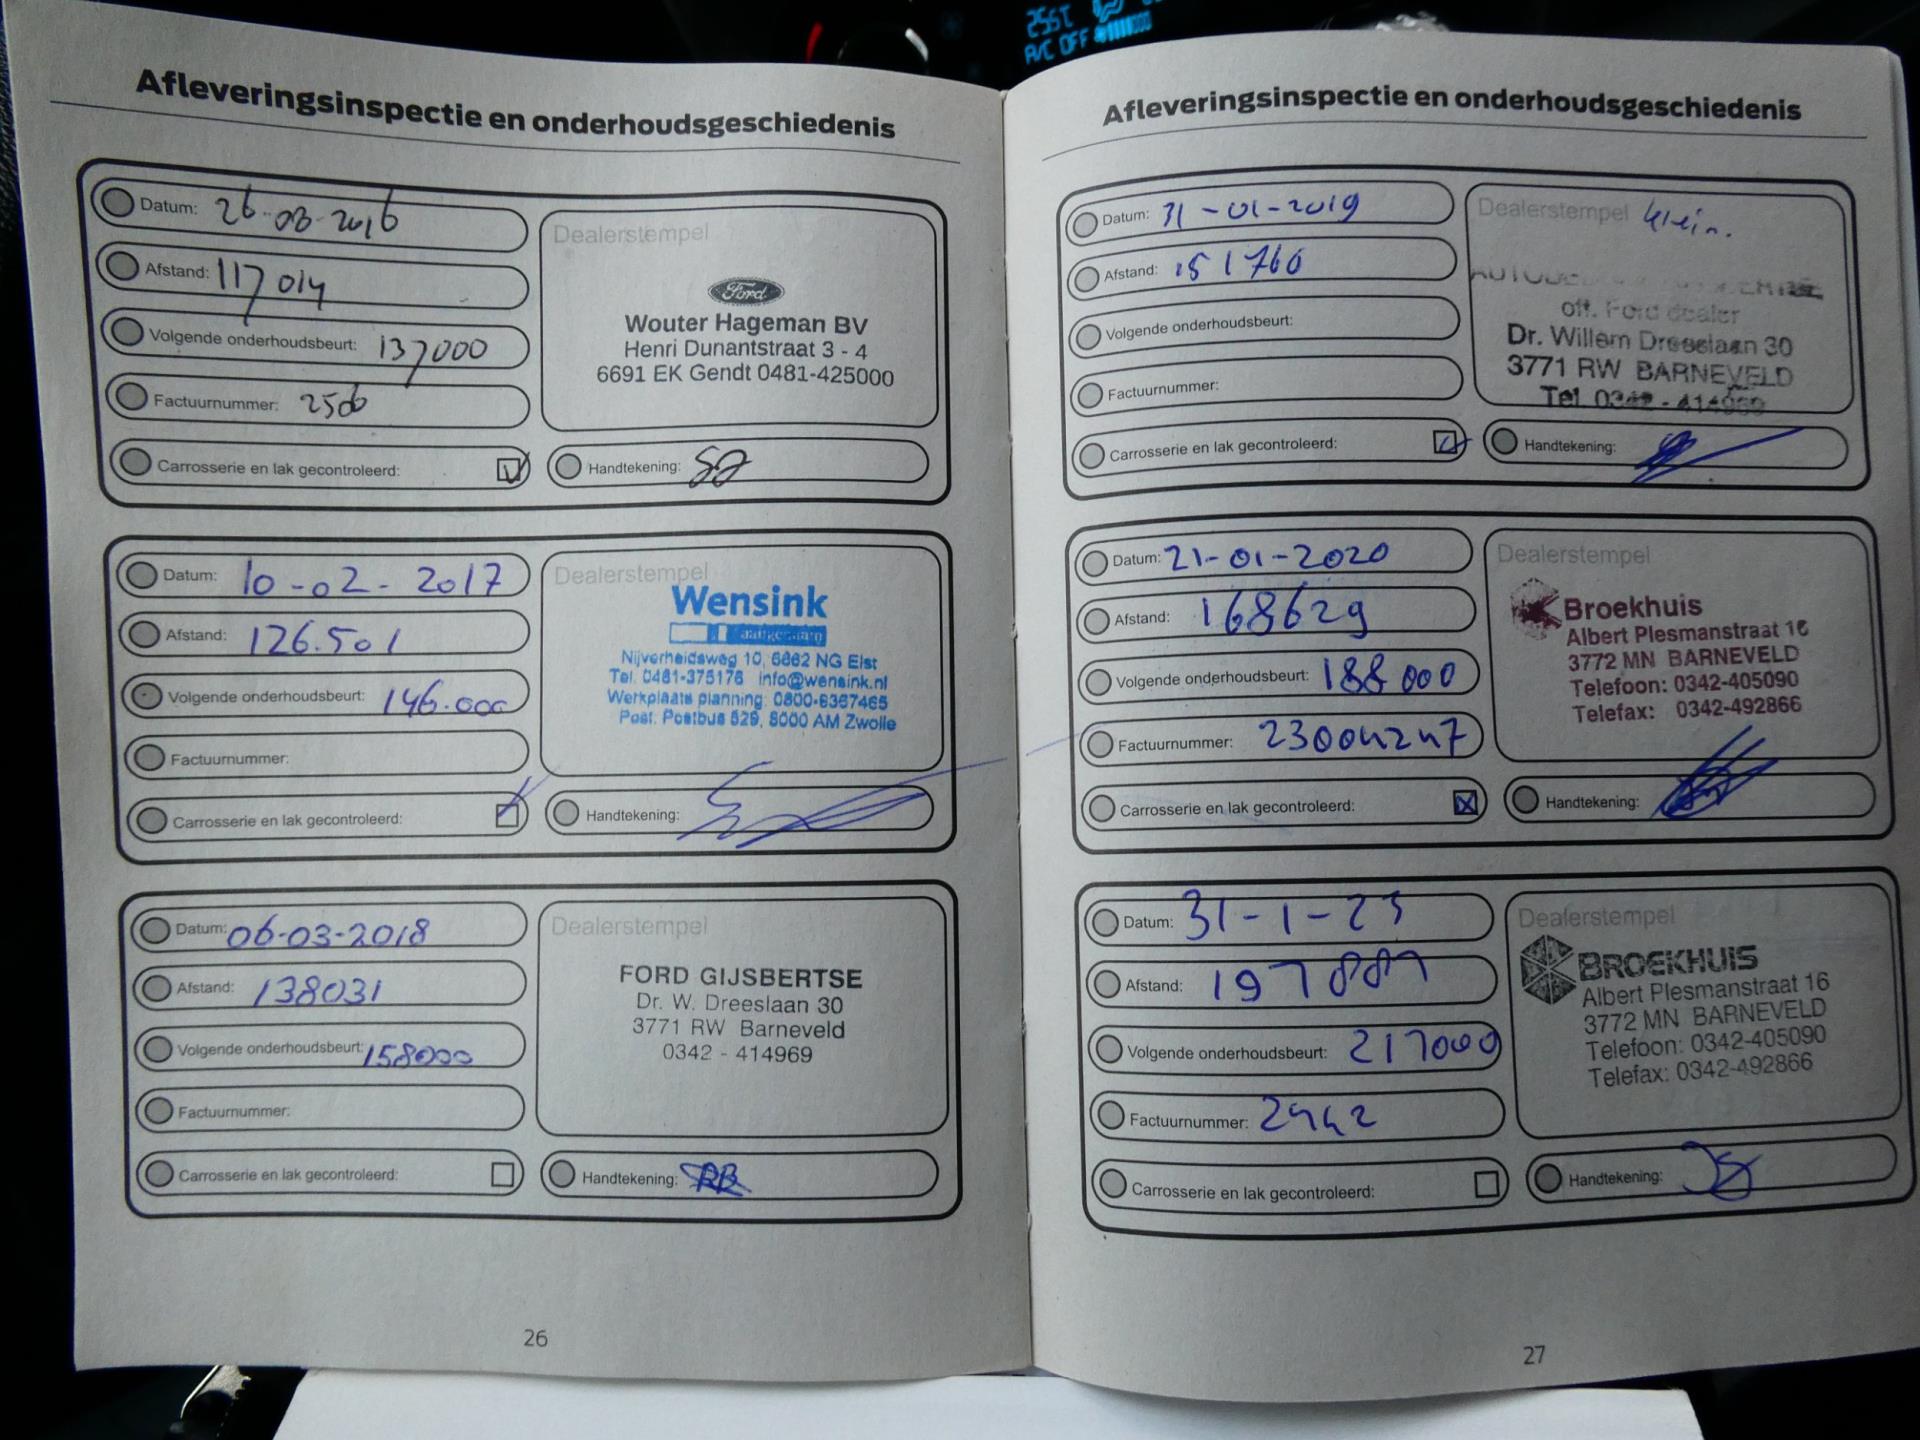 25ST
A/C OFF
Afleveringsinspectie en onderhoudsgeschiedenis
Datum: 26-08-2016
Afstand: 117014
Volgende onderhoudsbeurt: 137000
Factuurnummer: 2506
Carrosserie en lak gecontroleerd:
Dealerstempel
Ford
Wouter Hageman BV
Henri Dunantstraat 3 - 4
6691 EK Gendt 0481-425000
Handtekening:
Datum: 10-02-2017
Afstand: 126.501
Volgende onderhoudsbeurt: 146.000
Factuurnummer:
Carrosserie en lak gecontroleerd:
Dealerstempel
Wensink
Nijverheidsweg 10, 6662 NG Elst
Tel. 0481-375176 info@wensink.nl
Werkplaats planning: 0800-9367465
Post: Postbus 529, 8000 AM Zwolle
Handtekening:
Datum: 06-03-2018
Afstand: 138031
Volgende onderhoudsbeurt: 158000
Factuurnummer:
Carrosserie en lak gecontroleerd:
Dealerstempel
FORD GIJSBERTSE
Dr. W. Dreeslaan 30
3771 RW Barneveld
0342 - 414969
Handtekening: RB
26
Afleveringsinspectie en onderhoudsgeschiedenis
Datum: 31-01-2019
Afstand: 151760
Volgende onderhoudsbeurt:
Factuurnummer:
Carrosserie en lak gecontroleerd:
Dealerstempel klein.
off. Ford dealer
Dr. Willem Dreeslaan 30
3771 RW BARNEVELD
Tel. 0342 - 414969
Handtekening:
Datum: 21-01-2020
Afstand: 168629
Volgende onderhoudsbeurt: 188000
Factuurnummer: 23004247
Carrosserie en lak gecontroleerd:
Dealerstempel
Broekhuis
Albert Plesmanstraat 16
3772 MN BARNEVELD
Telefoon: 0342-405090
Telefax: 0342-492866
Handtekening:
Datum: 31-1-23
Afstand: 197889
Volgende onderhoudsbeurt: 217000
Factuurnummer: 2442
Carrosserie en lak gecontroleerd:
Dealerstempel
BROEKHUIS
Albert Plesmanstraat 16
3772 MN BARNEVELD
Telefoon: 0342-405090
Telefax: 0342-492866
Handtekening:
27